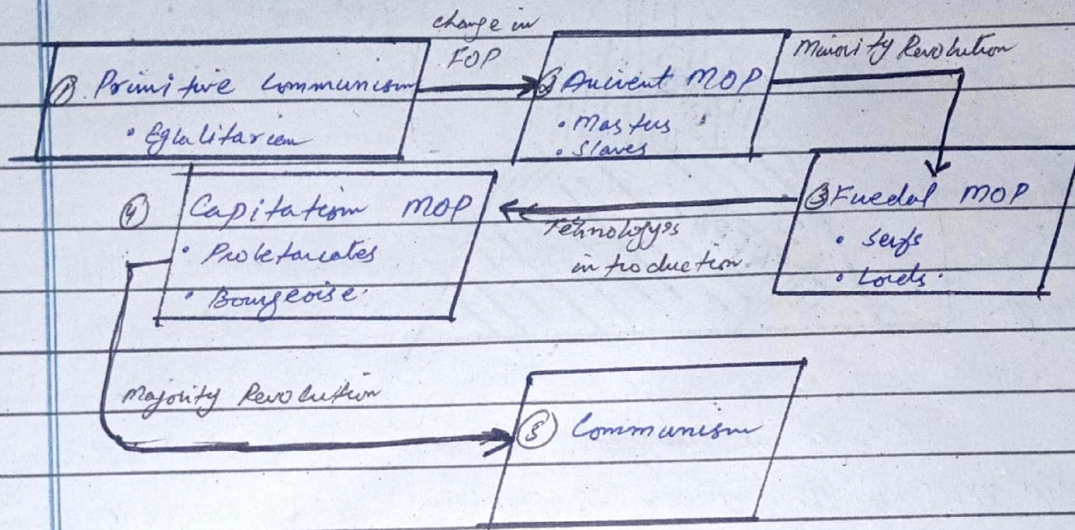 change in
FOP
① Primitive Communism
• Eglalitarian
② Ancient MOP
• Mastus
• Slaves
Minority Revolution
③ Fuedal MOP
• Serfs
• Lords.
Tehnology's
introduction.
④ Capitatism MOP
• Proletariates
• Bourgeoise.
Majority Revolution
⑤ Communism